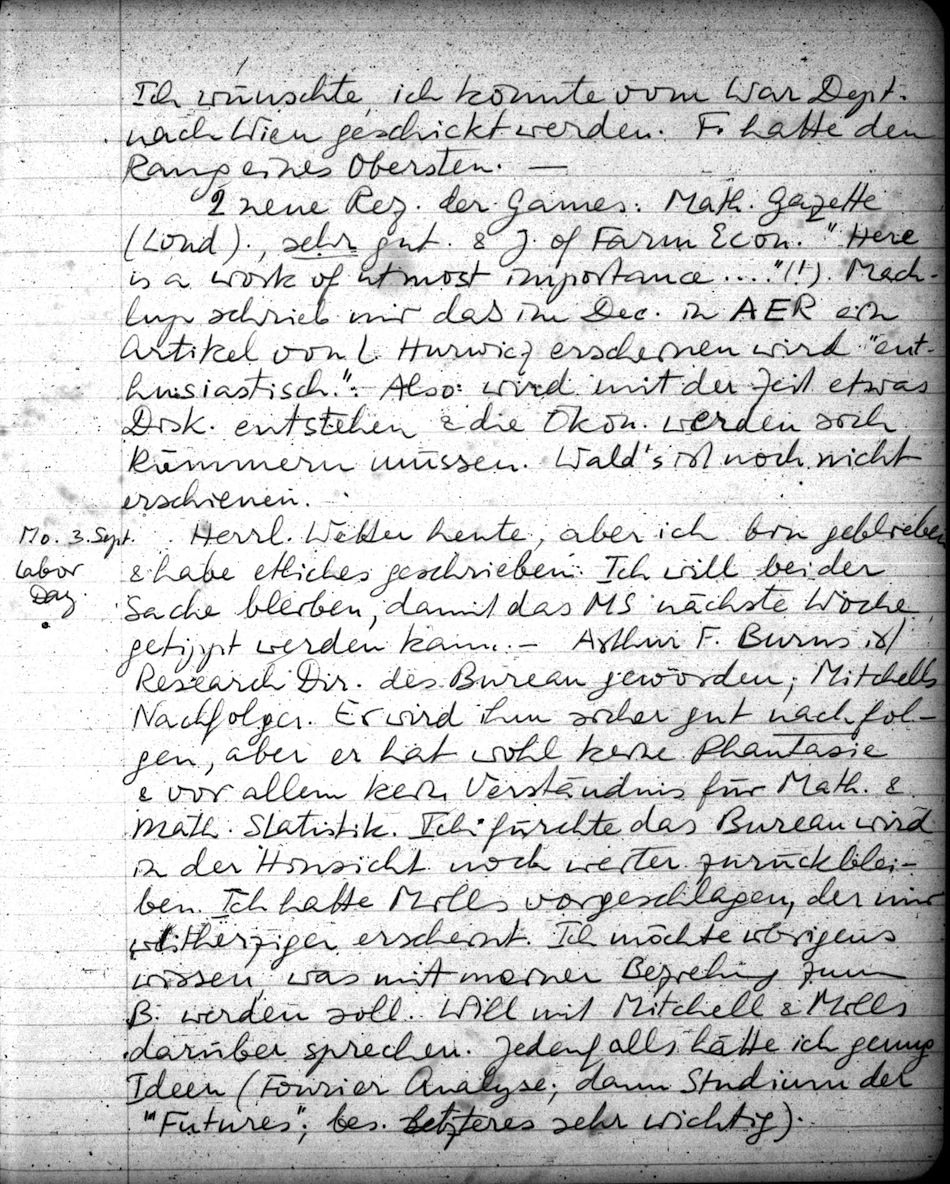 Ich wünschte, ich könnte vom War Dept.
nach Wien geschickt werden. F. hatte den
Rang eines Obersten. —
2 neue Rez. der Games: Math. Gazette
(Lond)., sehr gut. & J. of Farm Econ. "Here
is a work of utmost importance ...."(!). Mach-
lup schrieb mir das im Dec. in AER ein
Artikel von L. Hurwicz erscheinen wird "ent-
husiastisch". Also: wird mit der Zeit etwas
Disk. entstehen & die Ökon. werden sich
kümmern müssen. Wald's ist noch nicht
erschienen.
Mo. 3. Sept. Herrl. Wetter heute, aber ich bin geblieben
Labor & habe etliches geschrieben. Ich will bei der
Day. Sache bleiben, damit das MS nächste Woche
getippt werden kann. – Arthur F. Burns ist
Research Dir. des Bureau geworden; Mitchells
Nachfolger. Er wird ihm sicher gut nachfol-
gen, aber er hat wohl keine Phantasie
& vor allem kein Verständnis für Math. &
Math. Statistik. Ich fürchte das Bureau wird
in der Hinsicht noch weiter zurückblei-
ben. Ich hatte Mills vorgeschlagen, der mir
weitherziger erscheint. Ich möchte übrigens
wissen, was mit meiner Beziehung zum
B. werden soll. Will mit Mitchell & Mills
darüber sprechen. Jedenfalls hätte ich genug
Ideen (Fourier Analyse; dann Studium der
"Futures"; bes. letzteres sehr wichtig).